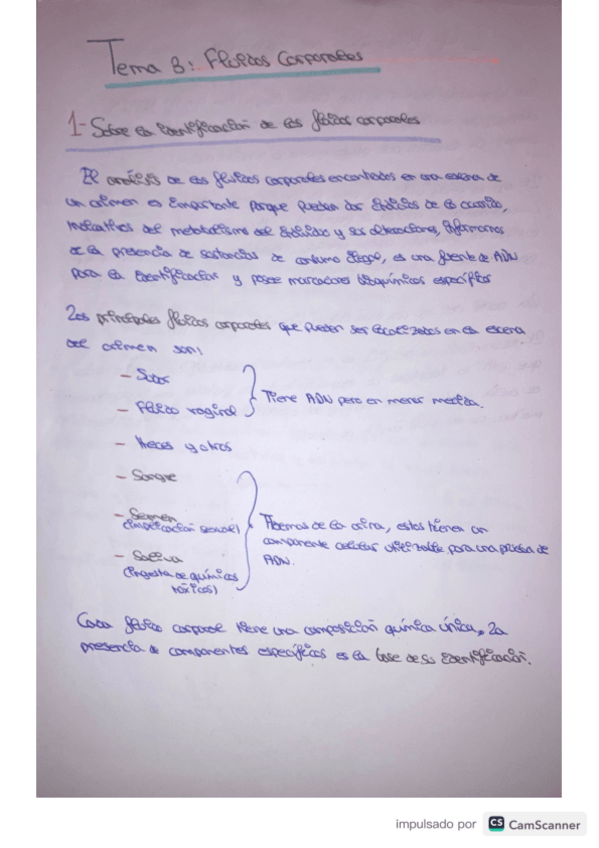 Tema 8: Fluidos Corporales
1- Sobre la identificación de los fluidos corporales
El análisis de los fluidos corporales encontrados en una escena de
un crimen es importante porque pueden dar indicios de lo ocurrido,
indicativos del metabolismo del individuo y sus alteraciones, informarnos
de la presencia de sustancias de consumo ilegal, es una fuente de ADN
para la identificación y posee marcadores bioquímicos específicos
Los principales fluidos corporales que pueden ser localizados en la escena
del crimen son:
- Sudor
- Fluido vaginal
Tiene ADN pero en menor medida.
- Heces y otros
- Sangre
- Semen
(implicación sexual)
- Saliva
(ingesta de químicos
tóxicos)
Además de la orina, estos tienen un
componente celular utilizable para una prueba de
ADN.
Cada fluido corporal tiene una composición química única. La
presencia de componentes específicos es la base de su identificación.
impulsado por CS CamScanner